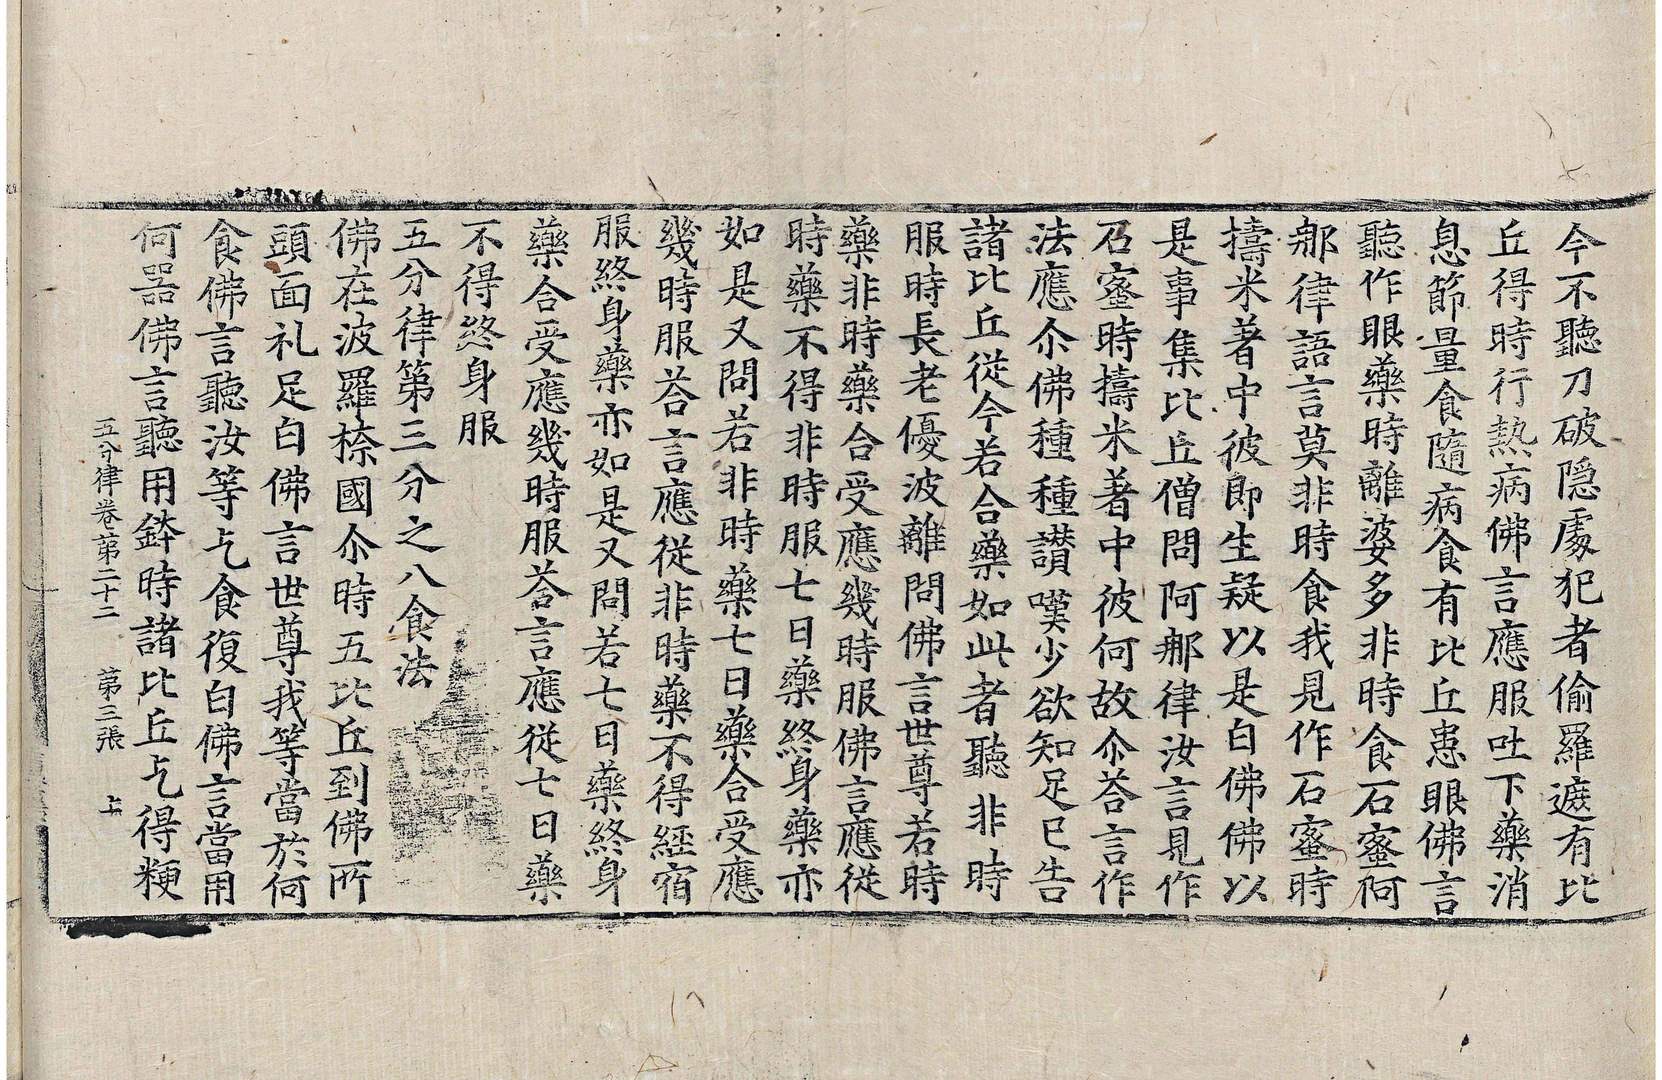 今不聽刀破隱處犯者偷羅遮有比
丘得時行熱病佛言應服吐下藥消
息節量食隨病食有比丘患眼佛言
聽作眼藥時離婆多非時食石蜜阿
那律語言莫非時食我見作石蜜時
擣米著中彼即生疑以是白佛佛以
是事集比丘僧問阿那律汝言見作
石蜜時擣米著中彼何故尒荅言作
法應尒佛種種讃嘆少欲知足已告
諸比丘從今若合藥如此者聽非時
服時長老優波離問佛言世尊若時
藥非時藥合受應幾時服佛言應從
時藥不得非時服七日藥終身藥亦
如是又問若非時藥七日藥合受應
幾時服荅言應從非時藥不得經宿
服終身藥亦如是又問若七日藥終身
藥合受應幾時服荅言應從七日藥
不得終身服
五分律第三分之八食法
佛在波羅㮈國尒時五比丘到佛所
頭面礼足白佛言世尊我等當於何
食佛言聽汝等乞食復白佛言當用
何器佛言聽用鉢時諸比丘乞得粳
五分律卷第二十二 第三張 上